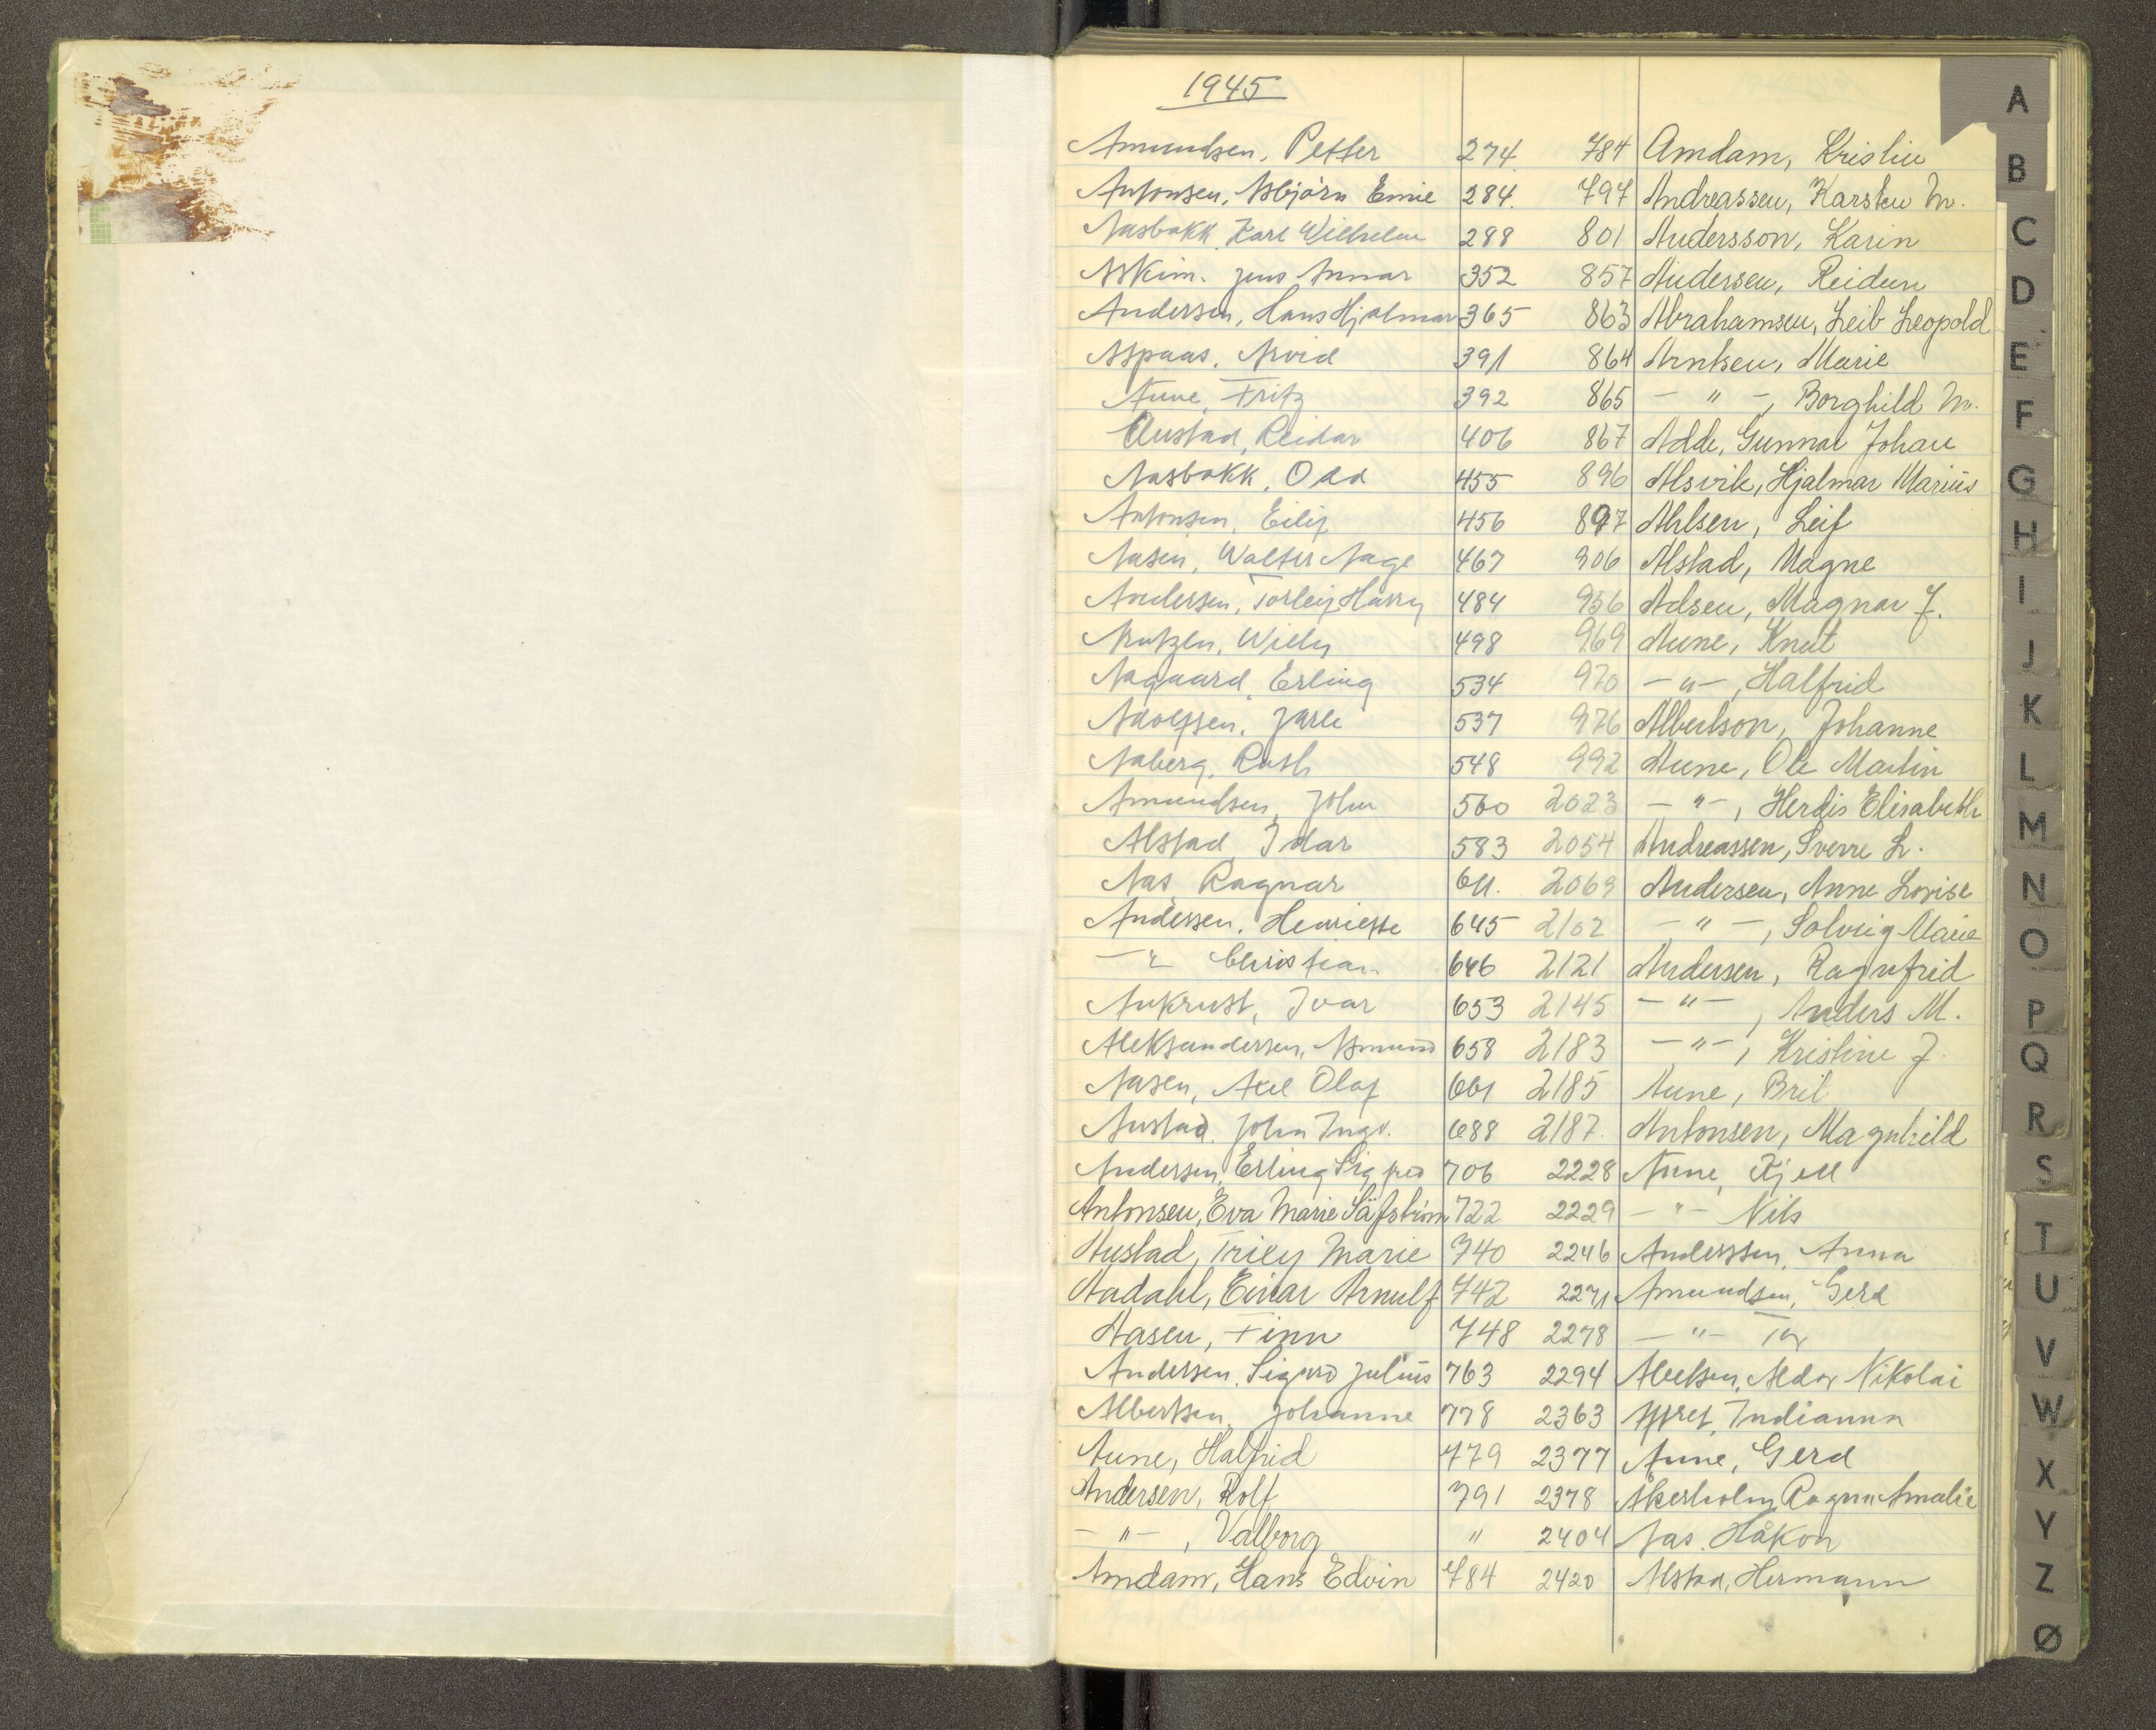 1945
Amundsen, Petter 274. 784 Amdam, Kristin
Antonsen, Asbjørn Emie 284. 797 Andreassen, Karsten M.
Aasbakk, Karl Wilhelm 288 801 Andersson, Karin
Askim. Jens Annar 352 857 Andersen, Reidun
Andersen, Hans Hjalmar 365 863 Abrahamsen, Leib Leopold
Aspaas, Arvid 391 864 Arntsen, Marie
Aune, Fritz 392 865 - " -, Borghild M.
Austad, Reidar 406 867 Adde, Gunnar Johan
Aasbakk, Odd 455 896 Alsvik, Hjalmar Marius
Antonsen, Eilif 456 897 Ahlsen, Leif
Aasen, Walter Aage 467 906 Alstad, Magne
Andersen, Torleif Harry 484 956 Adsen, Magnar J.
Arntzen, Willy 498 969 Aune, Knut
Aagaard, Erling 534 970 - " -, Halfrid
Adolfsen, Jarle 537 976 Albertson, Johanne
Aaberg, Ruth 548 992 Aune, Ole Martin
Amundsen, John 560 2023 - " -, Herdis Elisabeth
Alstad, Idar 583 2054 Andreassen, Sverre L.
Aas Ragnar 611. 2069 Andersen, Anne Lovise
Andersen, Henriette 645 2102 - " -, Solveig Marie
- " Christian 646 2121 Andersen, Ragnfrid
Aukrust, Ivar 653 2145 - " -, Anders M.
Aleksandersen, Asmund 658 2183 - " -, Kristine J.
Aasen, Axel Olaf 661 2185 Aune, Brit
Austad, John Ingv. 688 2187. Antonsen, Magnhild
Andersen, Erling Sigfred 706 2228 Aune, Kjell
Antonsen, Eva Marie Säfström 722 2229 - " - Nils
Austad, Tricy Marie 740 2246 Anderssen, Anna
Aadahl, Einar Arnulf 742 2271 Amundsen, Gerd
Aasen, Finn 748 2278 - " -
Andersen, Sigurd Julius 763 2294 Abelsen, Aldor Nikolai
Albertsen, Johanne 778 2363 Indianna
Aune, Halfrid 779 2377 Aune, Gerd
Andersen, Rolf 791 2378 Åkerholm, Ragna Amalie
- " -, Valborg " 2404 Aas. Håkon
Amdam, Hans Edvin 784 2420 Alstad, Hermann
A
B
C
D
E
F
G
H
I
J
K
L
M
N
O
P
Q
R
S
T
U
V
W
X
Y
Z
Ø